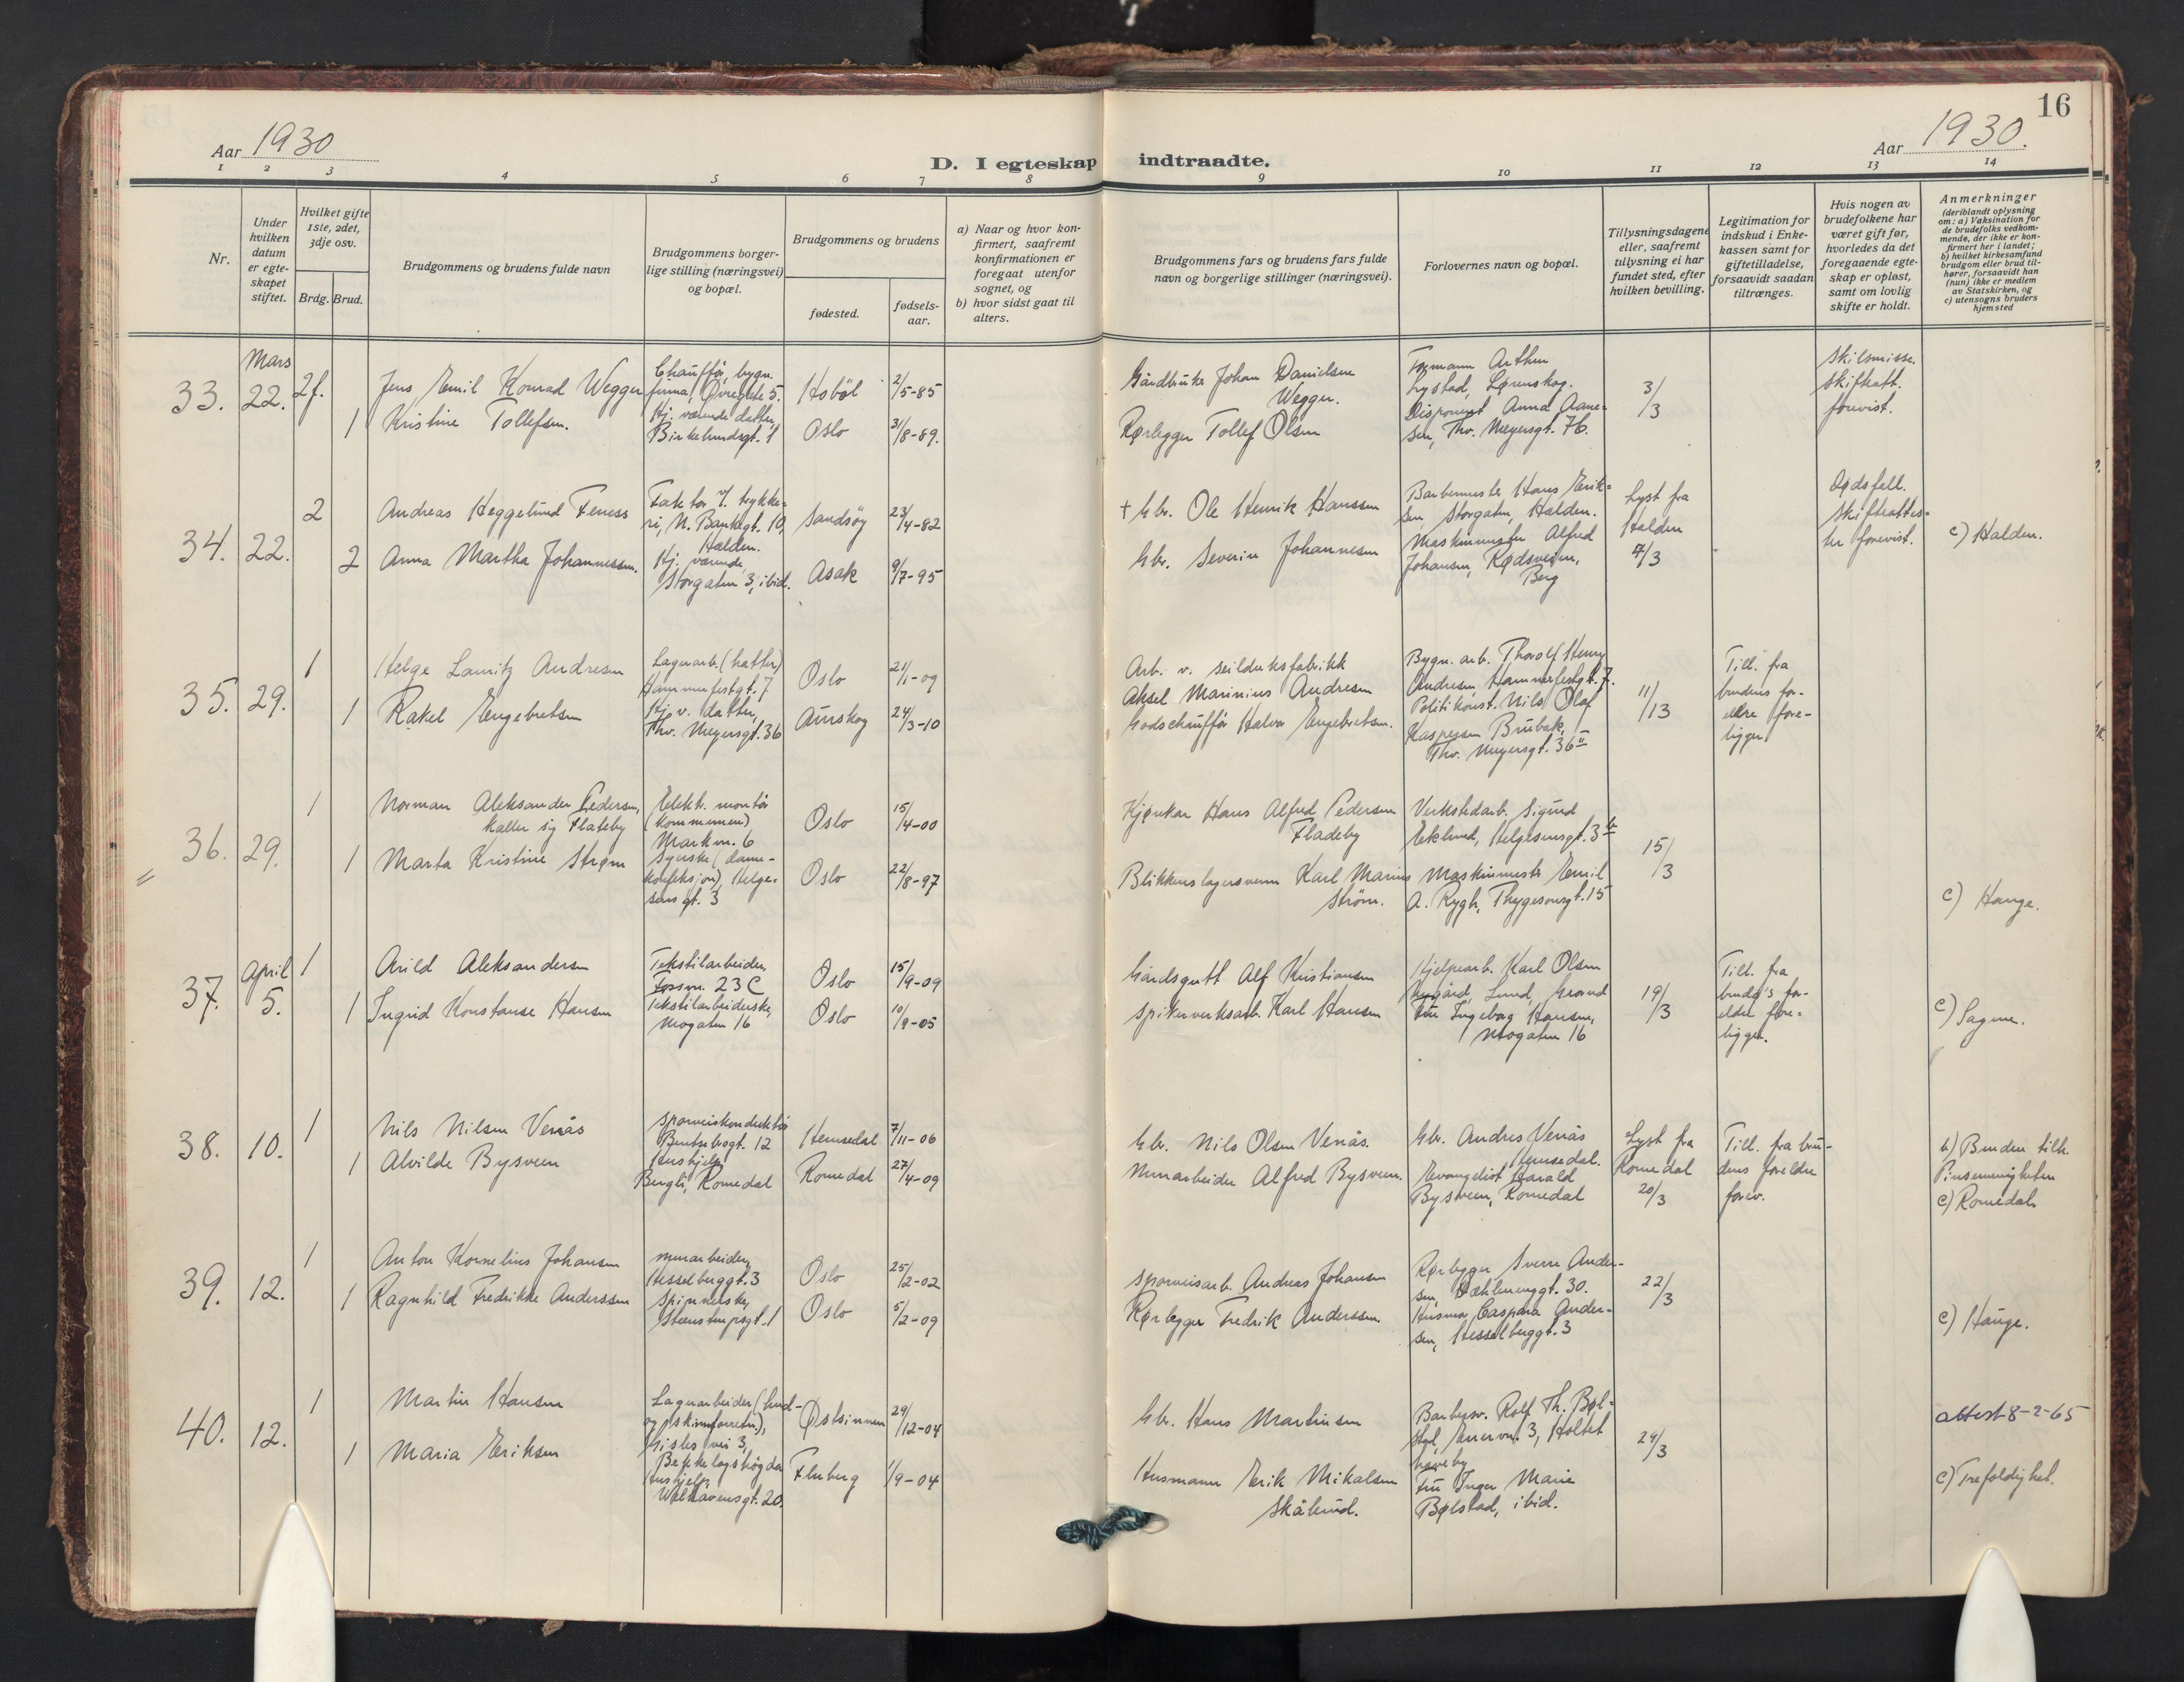 16
Aar 1930
Aar 1930.
D. I egteskap indtraadte.
1 2 3 4 5 6 7 8 9 10 11 12 13 14
Nr.
Under hvilken datum er egte-skapet stiftet.
Hvilket gifte 1ste, 2det, 3dje osv.
Brdg. Brud.
Brudgommens og brudens fulde navn
Brudgommens borger-lige stilling (næringsvei) og bopæl.
Brudgommens og brudens
fødested.
fødsels-aar.
a) Naar og hvor kon-firmert, saafremt konfirmationen er foregaat utenfor sognet, og
b) hvor sidst gaat til alters.
Brudgommens fars og brudens fars fulde navn og borgerlige stillinger (næringsvei).
Forlovernes navn og bopæl.
Tillysningsdagene eller, saafremt tillysning ei har fundet sted, efter hvilken bevilling.
Legitimation for indskud i Enke-kassen samt for giftetilladelse, forsaavidt saadan tiltrænges.
Hvis nogen av brudefolkene har været gift før, hvorledes da det foregaaende egte-skap er opløst, samt om lovlig skifte er holdt.
Anmerkninger (deriblandt oplysning om: a) Vaksination for de brudefolks vedkom-mende, der ikke er kon-firmert her i landet; b) hvilket kirkesamfund brudgom eller brud til-hører, forsaavidt han (hun) ikke er medlem av Statskirken, og c) utensogns bruders hjemsted
Mars
33. 22. 2f. Jens Emil Konrad Wegger
Chauffør, bygn. firma, Øvregate 5.
Hobøl 2/5-85
Gårdbruker Johan Danielsen Wegger.
Formann Arthur Lystad, Lørenskog.
3/3
Skilsmisse. Skifteatt. forevist.
1 Kristine Tollefsen.
Hj. værende datter, Birkelundsgt. 1
Oslo 31/8-89.
Rørlegger Tollef Olsen
Disponent Anna Aane-sen, Thv. Meyersgt. 76.
34. 22. 2 Andreas Heggelund Feness
Faktor v/ trykke-ri, N. Bankgt. 10, Halden.
Sandsøy 23/4-82
+ Gbr. Ole Henrik Hanssen
Barbermester Hans Erik-sen, Storgaten, Halden.
Lyst fra Halden 4/3
Dødsfall. Skifteattes-ter forevist.
c) Halden.
2 Anna Martha Johannessen.
Hj. værende, Storgaten 3, ibid.
Asak 9/7-95
Gbr. Severin Johannesen
Maskinmester Alfred Johansen, Rødsveien, Berg
35. 29. 1 Helge Lauritz Andresen
Lagerarb. (hatter) Hammerfestgt. 7
Oslo 21/1-09
Arb. v. seilduksfabrikk Aksel Marinius Andresen
Bygn. arb. Thorolf Henry Andresen, Hammerfestgt. 7.
11/13
Till. fra brudens for-eldre fore-ligger
1 Rakel Engebretsen
Hj. v. datter, Thv. Meyersgt. 36
Aurskog 24/3-10
Godschauffør Halvor Engebretsen.
Politikonst. Nils Olaf Kaspersen Brubak, Thv. Meyersgt. 36 II
36. 29. 1 Norman Aleksander Pedersen, kaller sig Flateby
Elektr. montør (kommunen) Markvn. 6
Oslo 15/4-00
Kjørekar Hans Alfred Pedersen Fladeby
Verkstedarb. Sigurd Eklund, Helgesensgt. 3 b
15/3
1 Marta Kristine Strøm
Syerske (dame-konfeksjon), Helge-sens gt. 3
Oslo 22/8-97
Blikkenslagersvenn Karl Marius Strøm.
Maskinmester Emil A. Rygh, Thygesonsgt. 15
c) Hauge.
April
37. 5. 1 Arild Aleksandersen
Tekstilarbeider, Fossvn. 23 C
Oslo 15/9-09
Gårdsgutt Alf Kristiansen
Hjelpearb. Karl Olsen
19/3
Till. fra brudg's for-eldre fore-ligger.
c) Sagene.
1 Ingrid Konstanse Hansen
Tekstilarbeiderske, Mogaten 16
Oslo 10/9-05
Spikerverksarb. Karl Hansen
Fru Ingeborg Hansen, Mogaten 16
38. 10. 1 Nils Nilsen Venås
Sporveiskonduktør Bentsebrogt. 12
Hemsedal 7/11-06
Gbr. Nils Olsen Venås.
Gbr. Andres Venås Hemsedal.
Lyst fra Romedal 20/3
Till. fra bru-dens foreldre forev.
b) Bruden tilh. Pinsemenigheten
c) Romedal
1 Alvilde Bysveen
Hushjelp Bergli, Romedal
Romedal 27/4-09
Murarbeider Alfred Bysveen.
Evangelist Harald Bysveen, Romedal
39. 12. 1 Anton Kornelius Johansen
Murarbeider, Hesselberggt. 3
Oslo 25/2-02
Sporveisarb. Andreas Johansen
Rørlegger Sverre Ander-sen, Dæhlenenggt. 30.
22/3
1 Ragnhild Fredrikke Anderssen
Spinnerske, Steenstrupsgt. 1
Oslo 5/2-09
Rørlegger Fredrik Anderssen.
Husmor Caspara Ander-sen, Hesselberggt. 3
c) Hauge.
40. 12. 1 Martin Hansen
Lagerarbeider (hud- og skinnforretn), Gisles vei 3, Bekkelagshøgda
Østsinnen 29/12-04
Gbr. Hans Martinsen
Barbersv. Rolf Th. Bøl-stad, Enervn. 3, Holtet haveby
24/3
attest 8-2-65
1 Maria Eriksen
Hushjelp Welhavensgt. 20.
Fluberg 1/9-04
Husmann Erik Mikalsen Skålerud.
Fru Inger Marie Bølstad, ibid.
c) Trefoldighet.